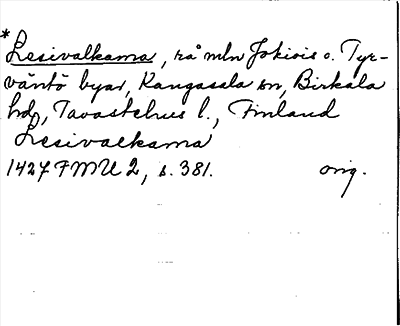 * Lesivalkama, rå mln Jokiois o. Tyr-
väntö byar, Kangasala sn, Birkala
hd, Tavastehus l., Finland
Lesivalkama
1427 FMU 2, s. 381. orig.